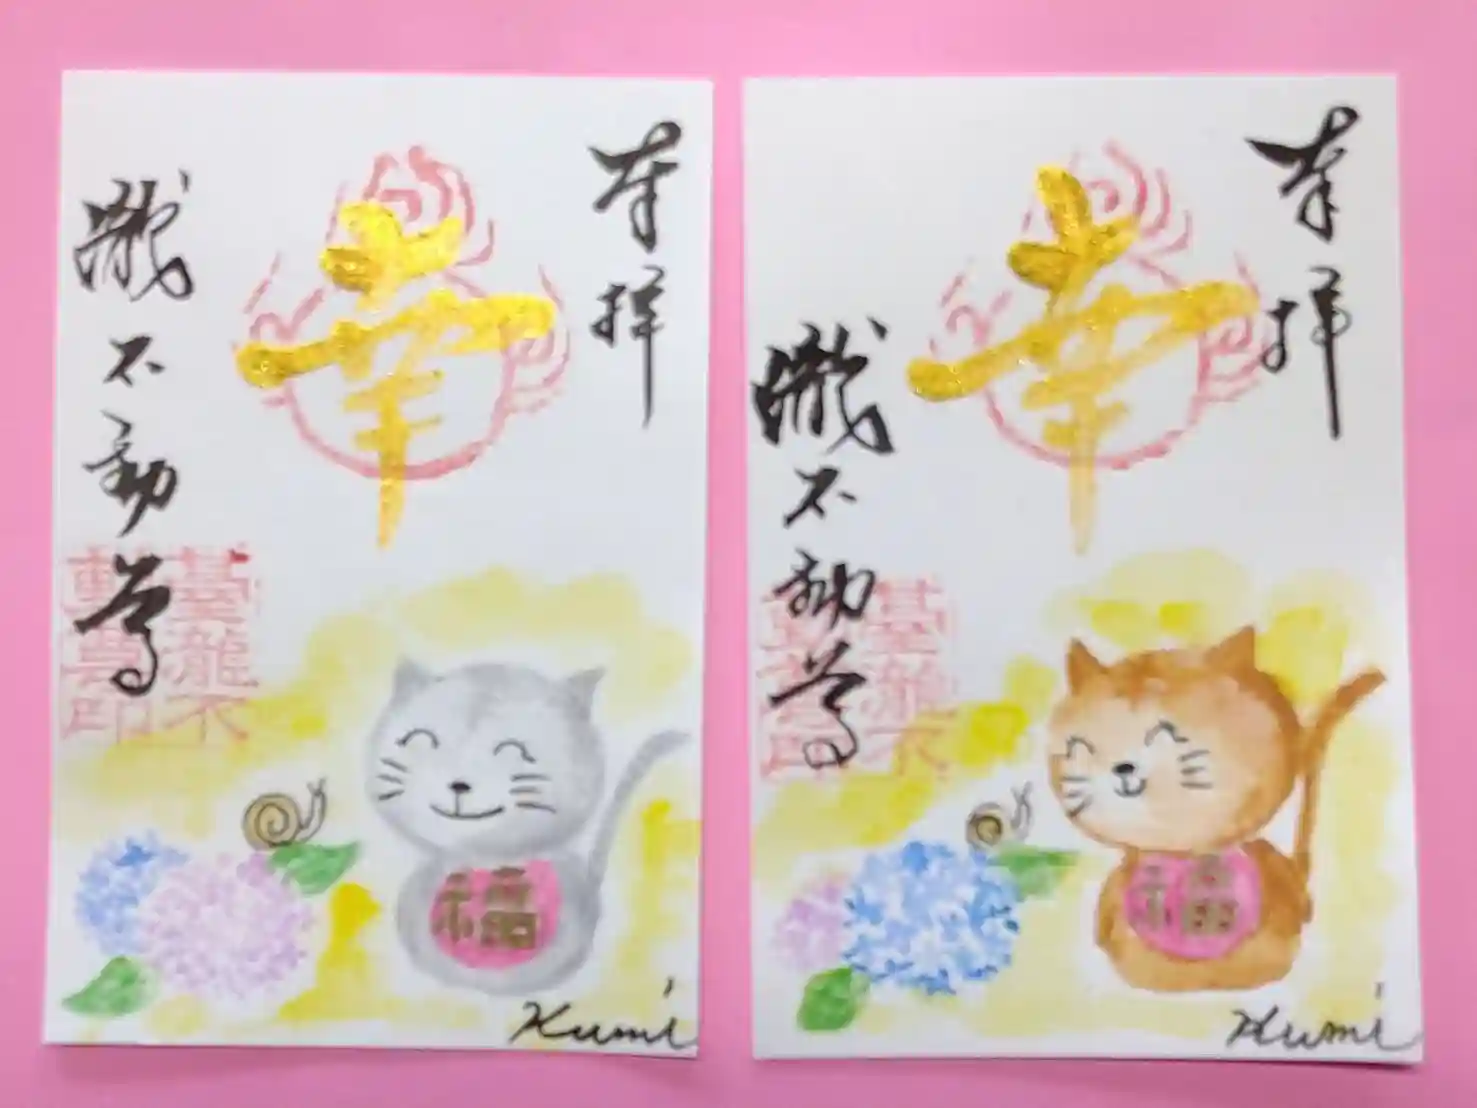 奉拝
幸
瀧不動尊
臺龍不
動尊印
福
Kumi
奉拝
幸
瀧不動尊
臺龍不
動尊印
福
Kumi